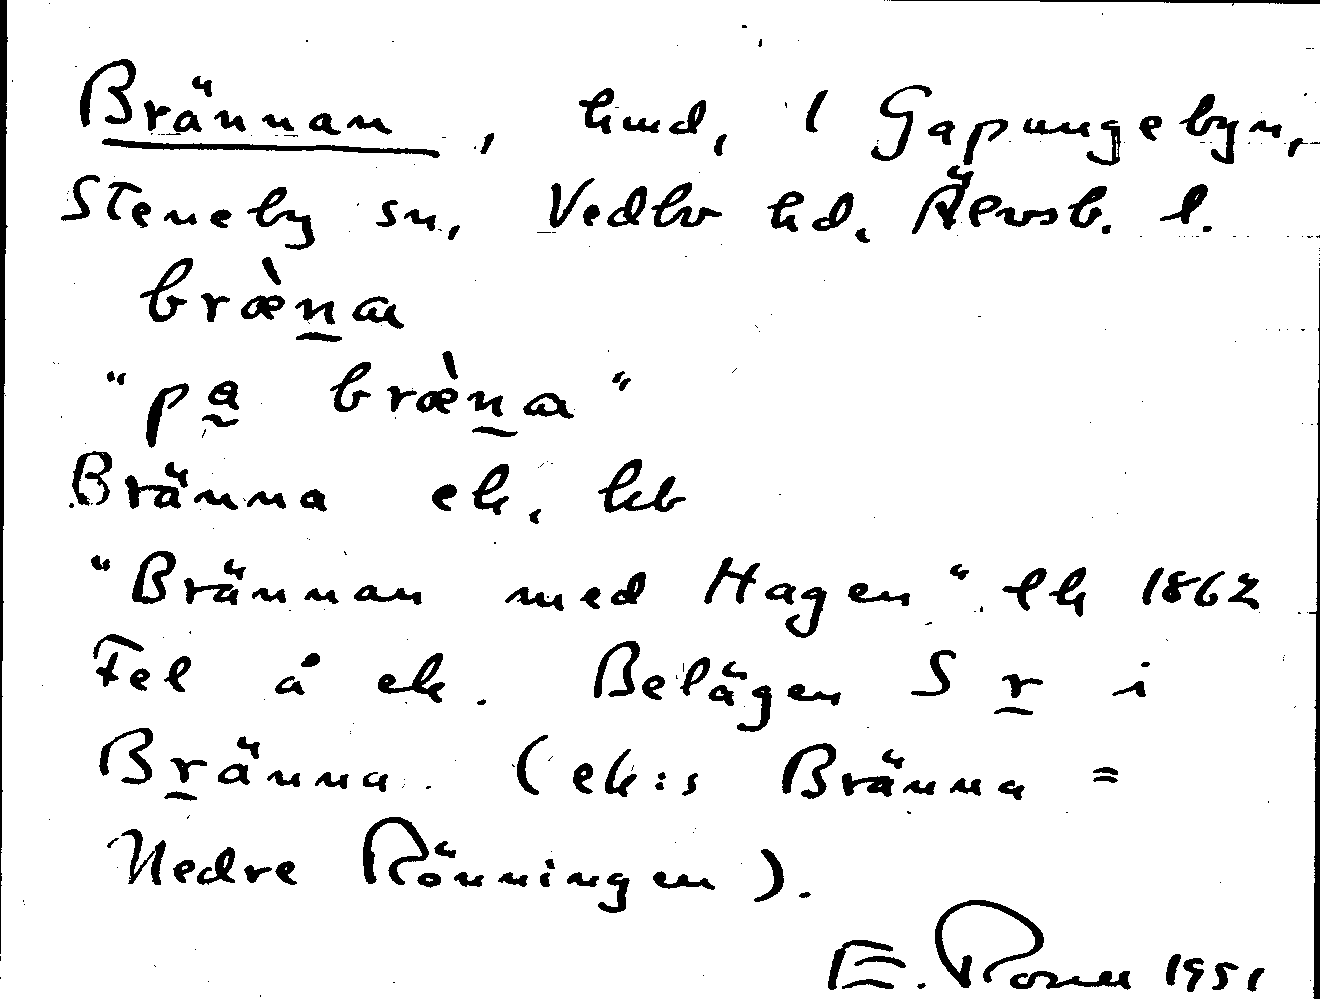 Brännan, hmd, 1 Gapungebyn,
Steneby sn, Vedbo hd, Älvsb. l.
bræ̀na
"pa bræ̀na"
Bränna ek. kb
"Brännan med Hagen" lk 1862
Fel å ek. Belägen S r i
Bränna. (ek:s Bränna =
Nedre Rönningen).
E. 1951